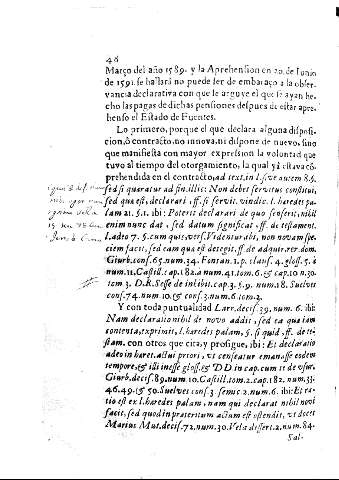 46
Março del año 1589. y la Aprehension en 20. de Iunio
de 1591. se hallarà no puede ser de embaraço a la obser-
vancia declarativa con que se arguye el que se ayan he-
cho las pagas de dichas pensiones despues de estar apre-
henso el Estado de Fuentes.
Lo primero, porque el que declara alguna disposi-
cion, ò contracto, no innova, ni dispone de nuevo, sino
que manifiesta con mayor expression la voluntad que
tuvo al tiempo del otorgamiento, la qual yà estava cõ-
prehendida en el contracto, ad text. in l. sive autem 8. §.
sed si quæratur ad fin. illis: Non debet servitus constitui,
sed qua est, declarari, ff. si servit. vindic. l. hæredes pa-
lam 21. §. 1. ibi: Poterit declarari de quo senserit, nihil
enim nunc dat, sed datum significat, ff. de testament.
l. adeo 7. §. cum quis, vers. Videntur abi, non novam spe-
ciem facit, sed eam qua est detegit, ff. de adquir. rer. dom.
Giurb. cons. 65. num. 34. Fontan. t. p. clausf. 4. gloss. 5. à
num. 11. Castill. cap. 182. à num. 41. tom. 6. & cap. 10. n. 30.
tom. 3. D. R. Sesse de inhibit. cap. 3. §. 9. num. 18. Suelves
cons. 74. num. 10. & cons. 3. num. 6. tom. 2.
Y con toda puntualidad Larr. decis. 39. num. 6. ibi
Nam declaratio nihil de novo addit, sed ea quæ iam
contenta, exprimit, l. hæredes palam, §. si quid, ff. de te-
stam. con otros que cita, y prosigue, ibi: Et declaratio
adeo in hæret. actui priori, vt censeatur emanasse eodem
tempore, & illi inesse gloss. & DD. in cap. cum tt. de vsur.
Giurb. decis. 89. num. 10. Castill. tom. 2. cap. 182. num. 33.
46. 49. & 50. Suelves cons. 3. semic. 2. num. 6. ibi: Et ra-
tio est ex l. hæredes palam, nam qui declarat nihil novi
facit, sed quod in præteritum actum est ostendit, vt docet
Marius Mut. decis. 72. num. 30. Vela dissert. 2. num. 84.
Sal-